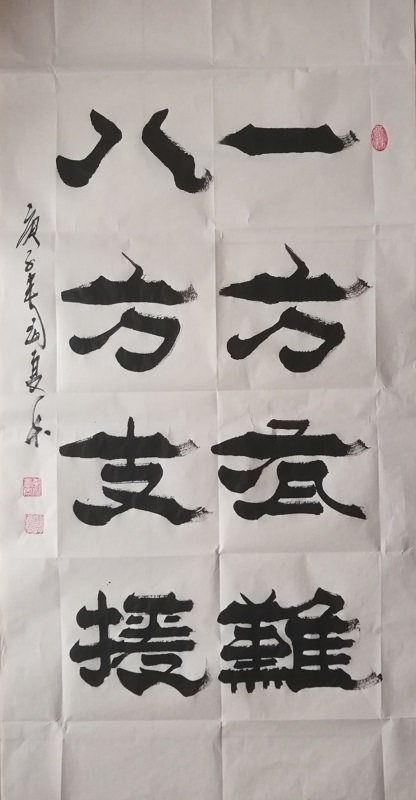 一方有難
八方支援
庚子春